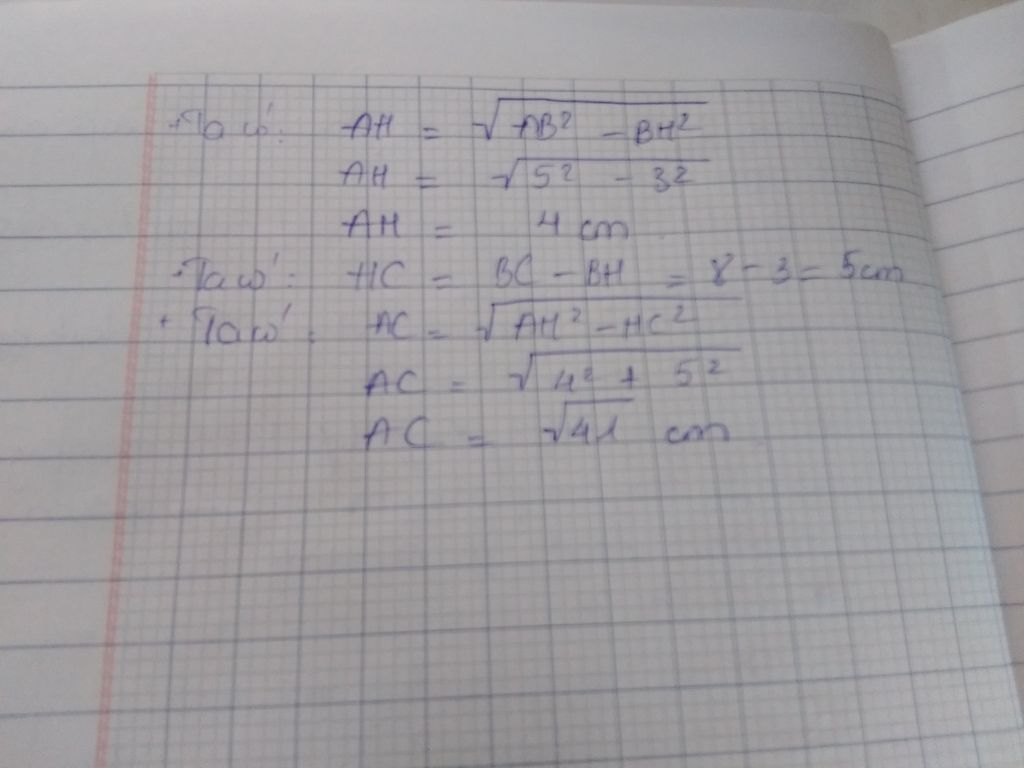 + Ta có: AH = √AB² - BH²
AH = √5² - 3²
AH = 4 cm
+ Ta có: HC = BC - BH = 8 - 3 = 5cm
+ Ta có: AC = √AH² - HC²
AC = √4² + 5²
AC = √41 cm